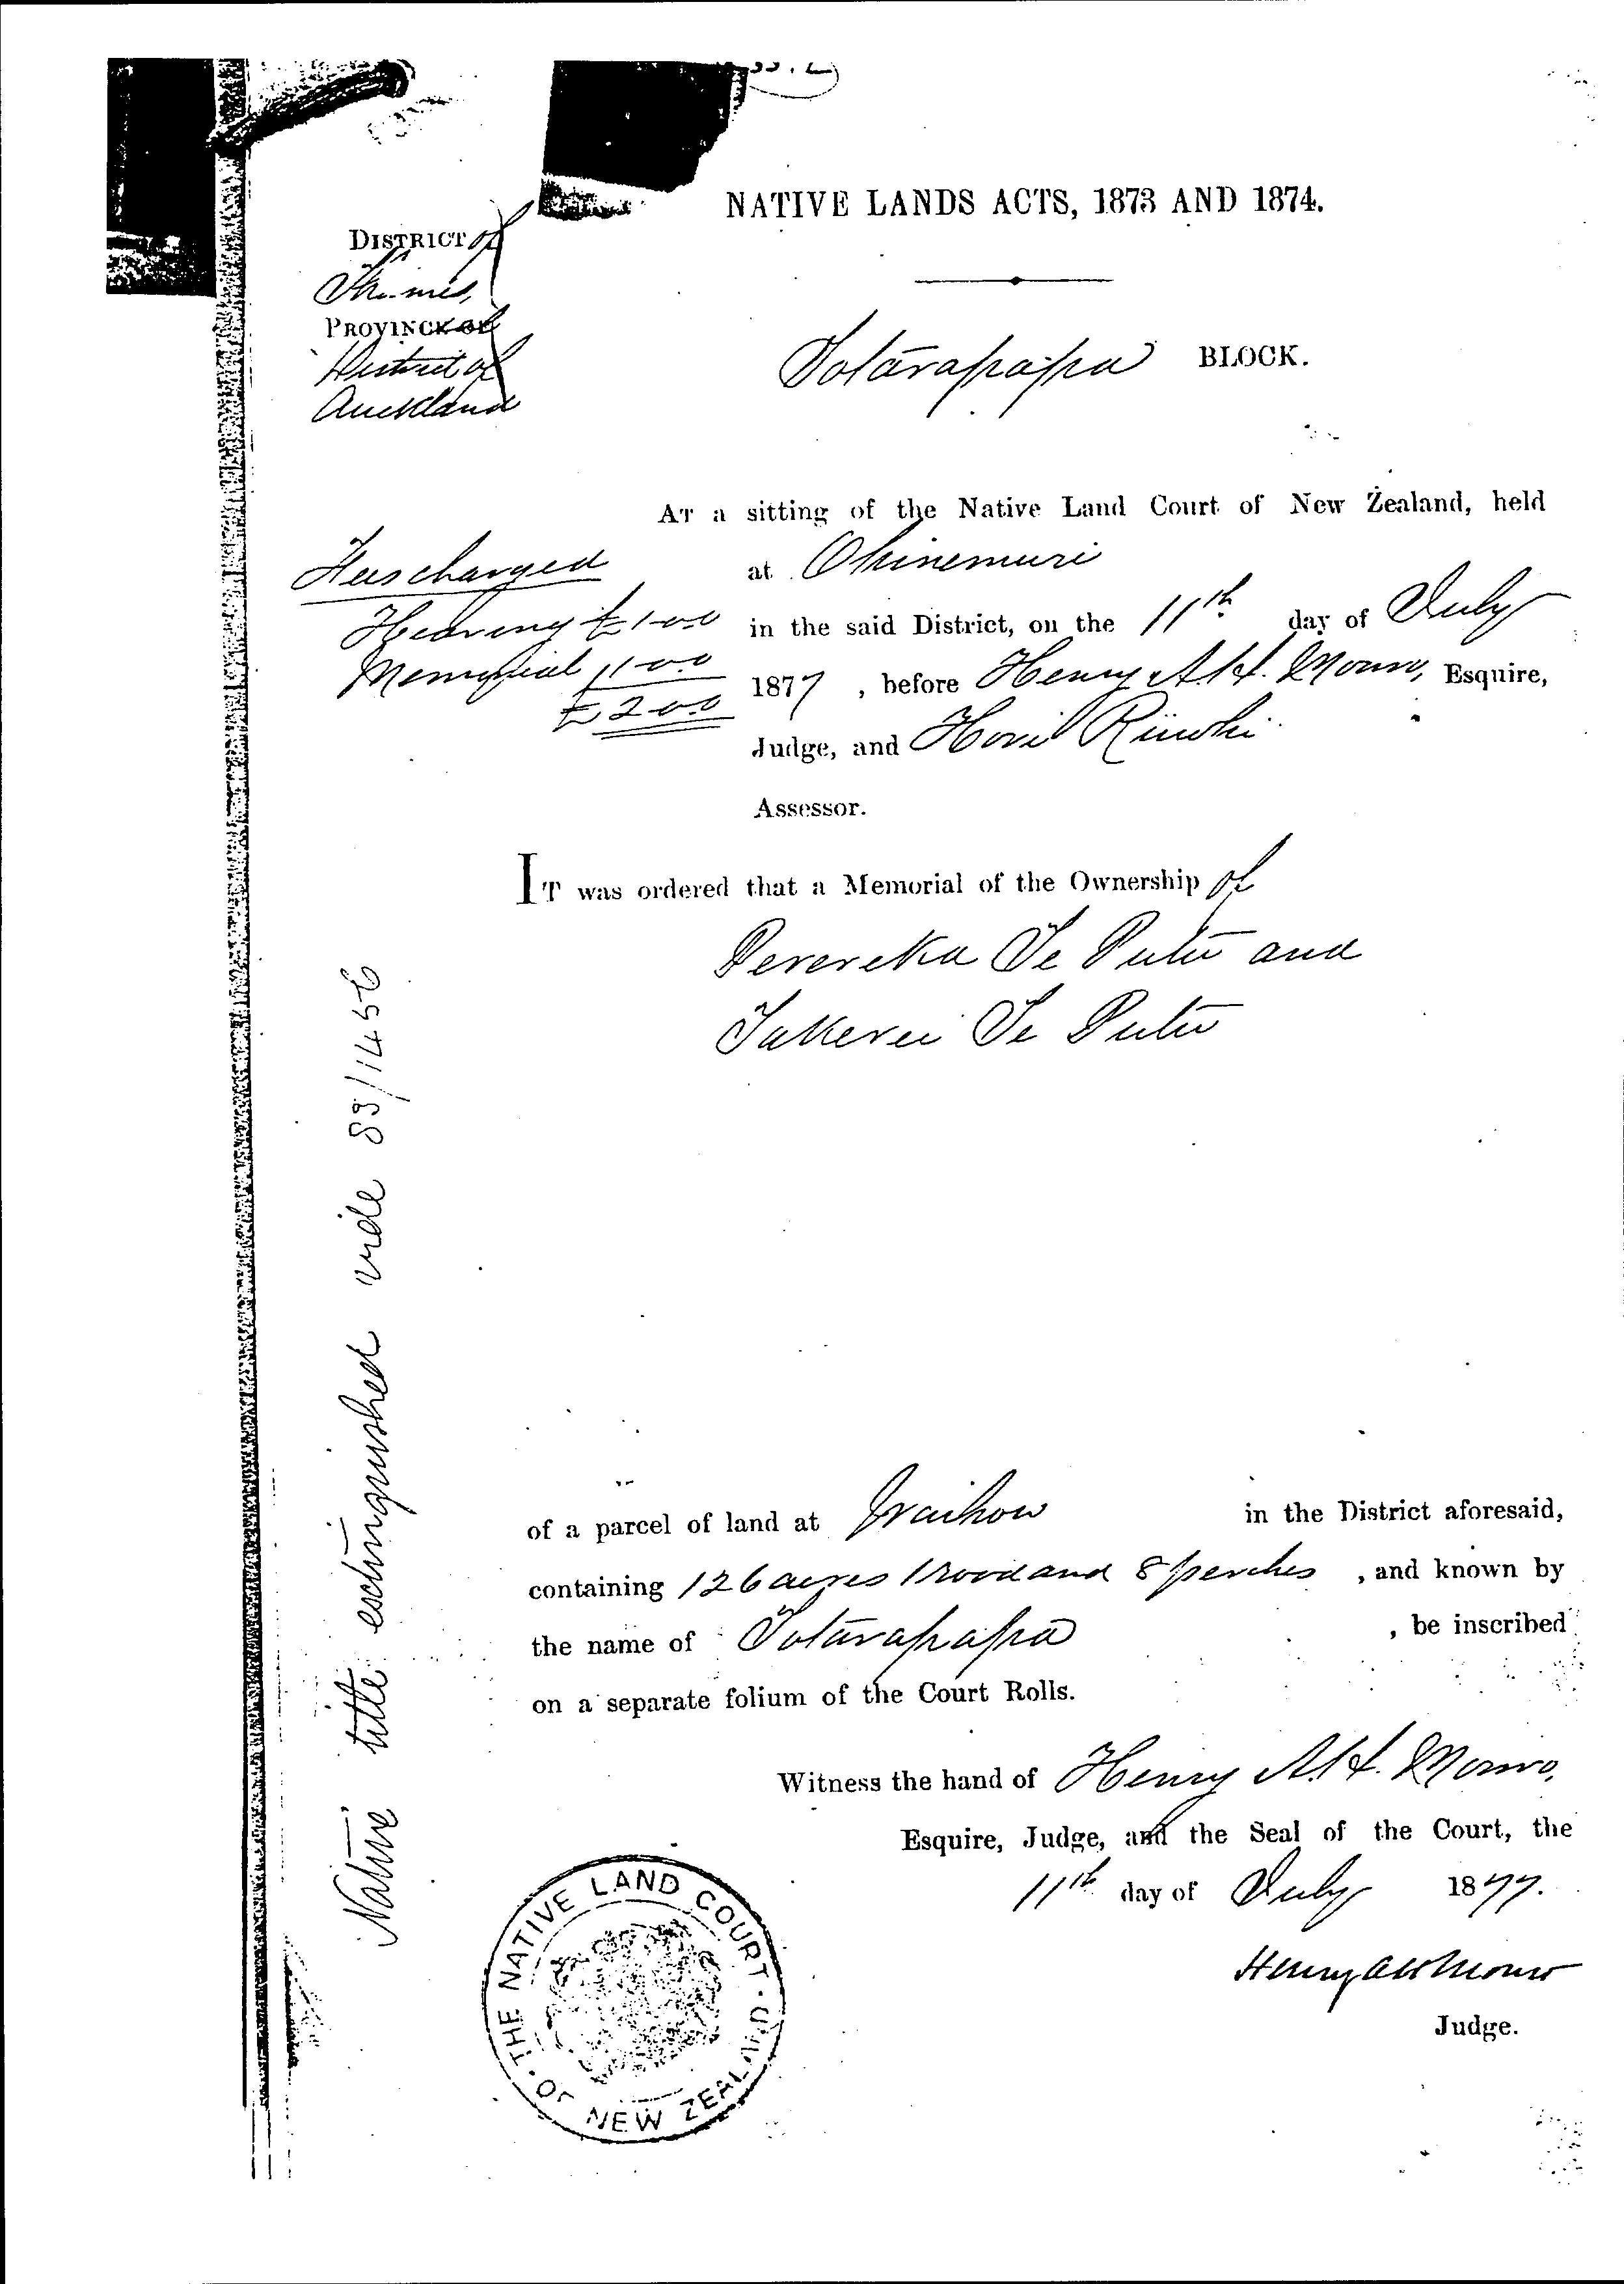 NATIVE LANDS ACTS, 1873 AND 1874.
DISTRICT of
Thames,
PROVINCE OF
District of
Auckland
Totarapapa BLOCK.
AT a sitting of the Native Land Court of New Zealand, held
at Ohinemuri
in the said District, on the 11th day of July
1877, before Henry A. H. Monro, Esquire,
Judge, and Hori
Assessor.
Fees charged
Hearing £1-0-0
Memorial 1-0-0
£2-0-0
IT was ordered that a Memorial of the Ownership of
Perereka Te Putu and
Takerei Te Putu
of a parcel of land at Waihou in the District aforesaid,
containing 126 acres 1 rood and 8 perches, and known by
the name of Totarapapa, be inscribed
on a separate folium of the Court Rolls.
Witness the hand of Henry A. H. Monro,
Esquire, Judge, and the Seal of the Court, the
11th day of July 1877.
Henry A H Monro
Judge.
THE NATIVE LAND COURT OF NEW ZEALAND
Native title extinguished vide 83/1456